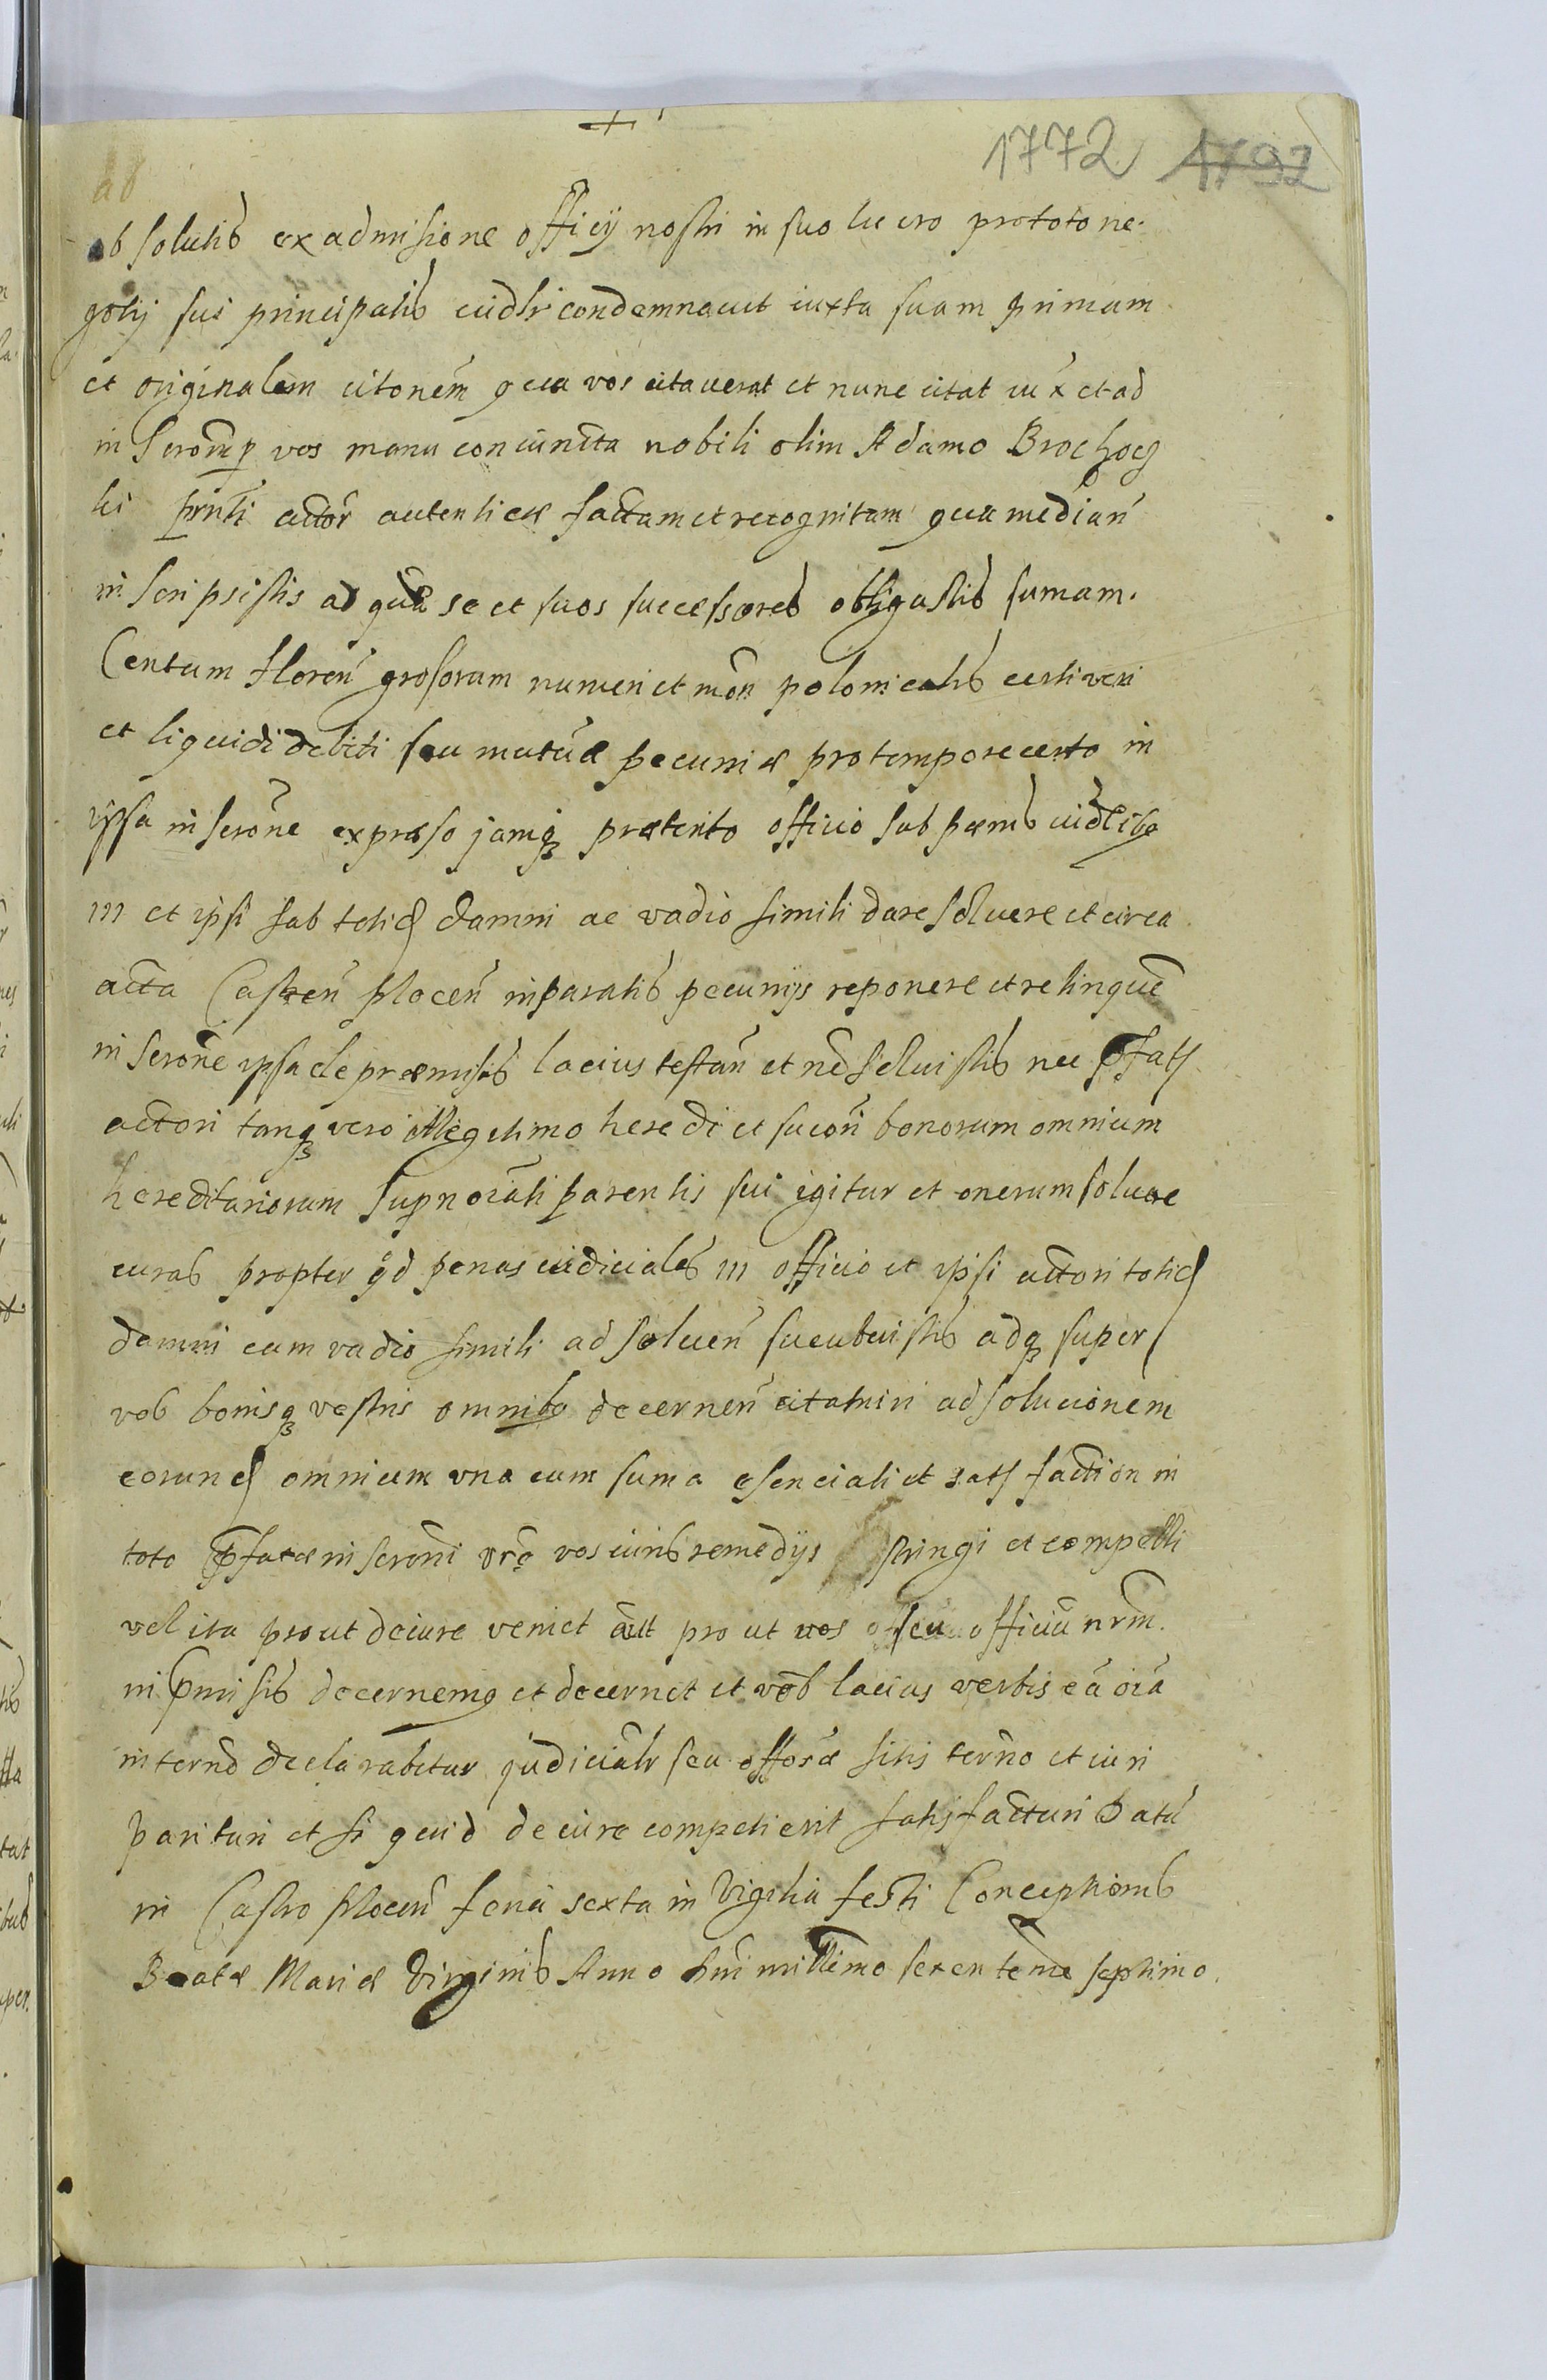 1772 1792
ab
absolutis ex admisione officÿ nostri in suo lucro pro toto ne-
gotÿ sui principalis iudlr condemnavit iuxta suam primam
et originalem citonem qua vos citaverat et nunc citat iux et ad
inscronem p vos manu coniuncta nobili olim Adamo Brochoc
ki prnti actor autenticæ factam et recognitam qua median
inscripsistis ad qua se et suos successores obligastis sumam.
Centum floren grosorum numeri et mon polonicalis certi veri
et liquidi debiti seu mutuæ pecuniæ pro tempore certo in
ipsa inscrone expraeso jamq praeterito officio sub paenis iudlibq
III et ipsi sub totid damni ac vadio simili dare solvere et circa
acta Castren plocen in paratis pecunÿs reponere et relinquere
inscrone ipsa de præmisis lacius testan et no solvistis nec pfato
actori tanq vero et legitimo heredi et sucori bonorum omnium
hereditariorum supnoiati parentis sui igitur et onerum solvere
curas propter qd penas iudiciales III officio et ipsi actori totid
damni cum vadio simili ad solven sucubuistis adq super
vos bonisq vestris omnibq decernen citamini ad solucionem
eorund omnium una cum suma esenciali et satisfaction in
toto pfatæ inscroni vre vos iuris remedÿs stringi et compelli
vel ita prout de iure veniet aut pro ut vos seu officiu nrm.
in pmisis decernemq et decernet et vob lacius verbis ea oia
in termo declarabitur judicialr seu offose sitis termo et iuri
parituri et si quid de iure competierit satisfacturi Datu
in Castro Plocen feria sexta in Vigilia festi Conceptionis
Beatæ Mariæ Virginis Anno dni millemo sexcentemo septimo.